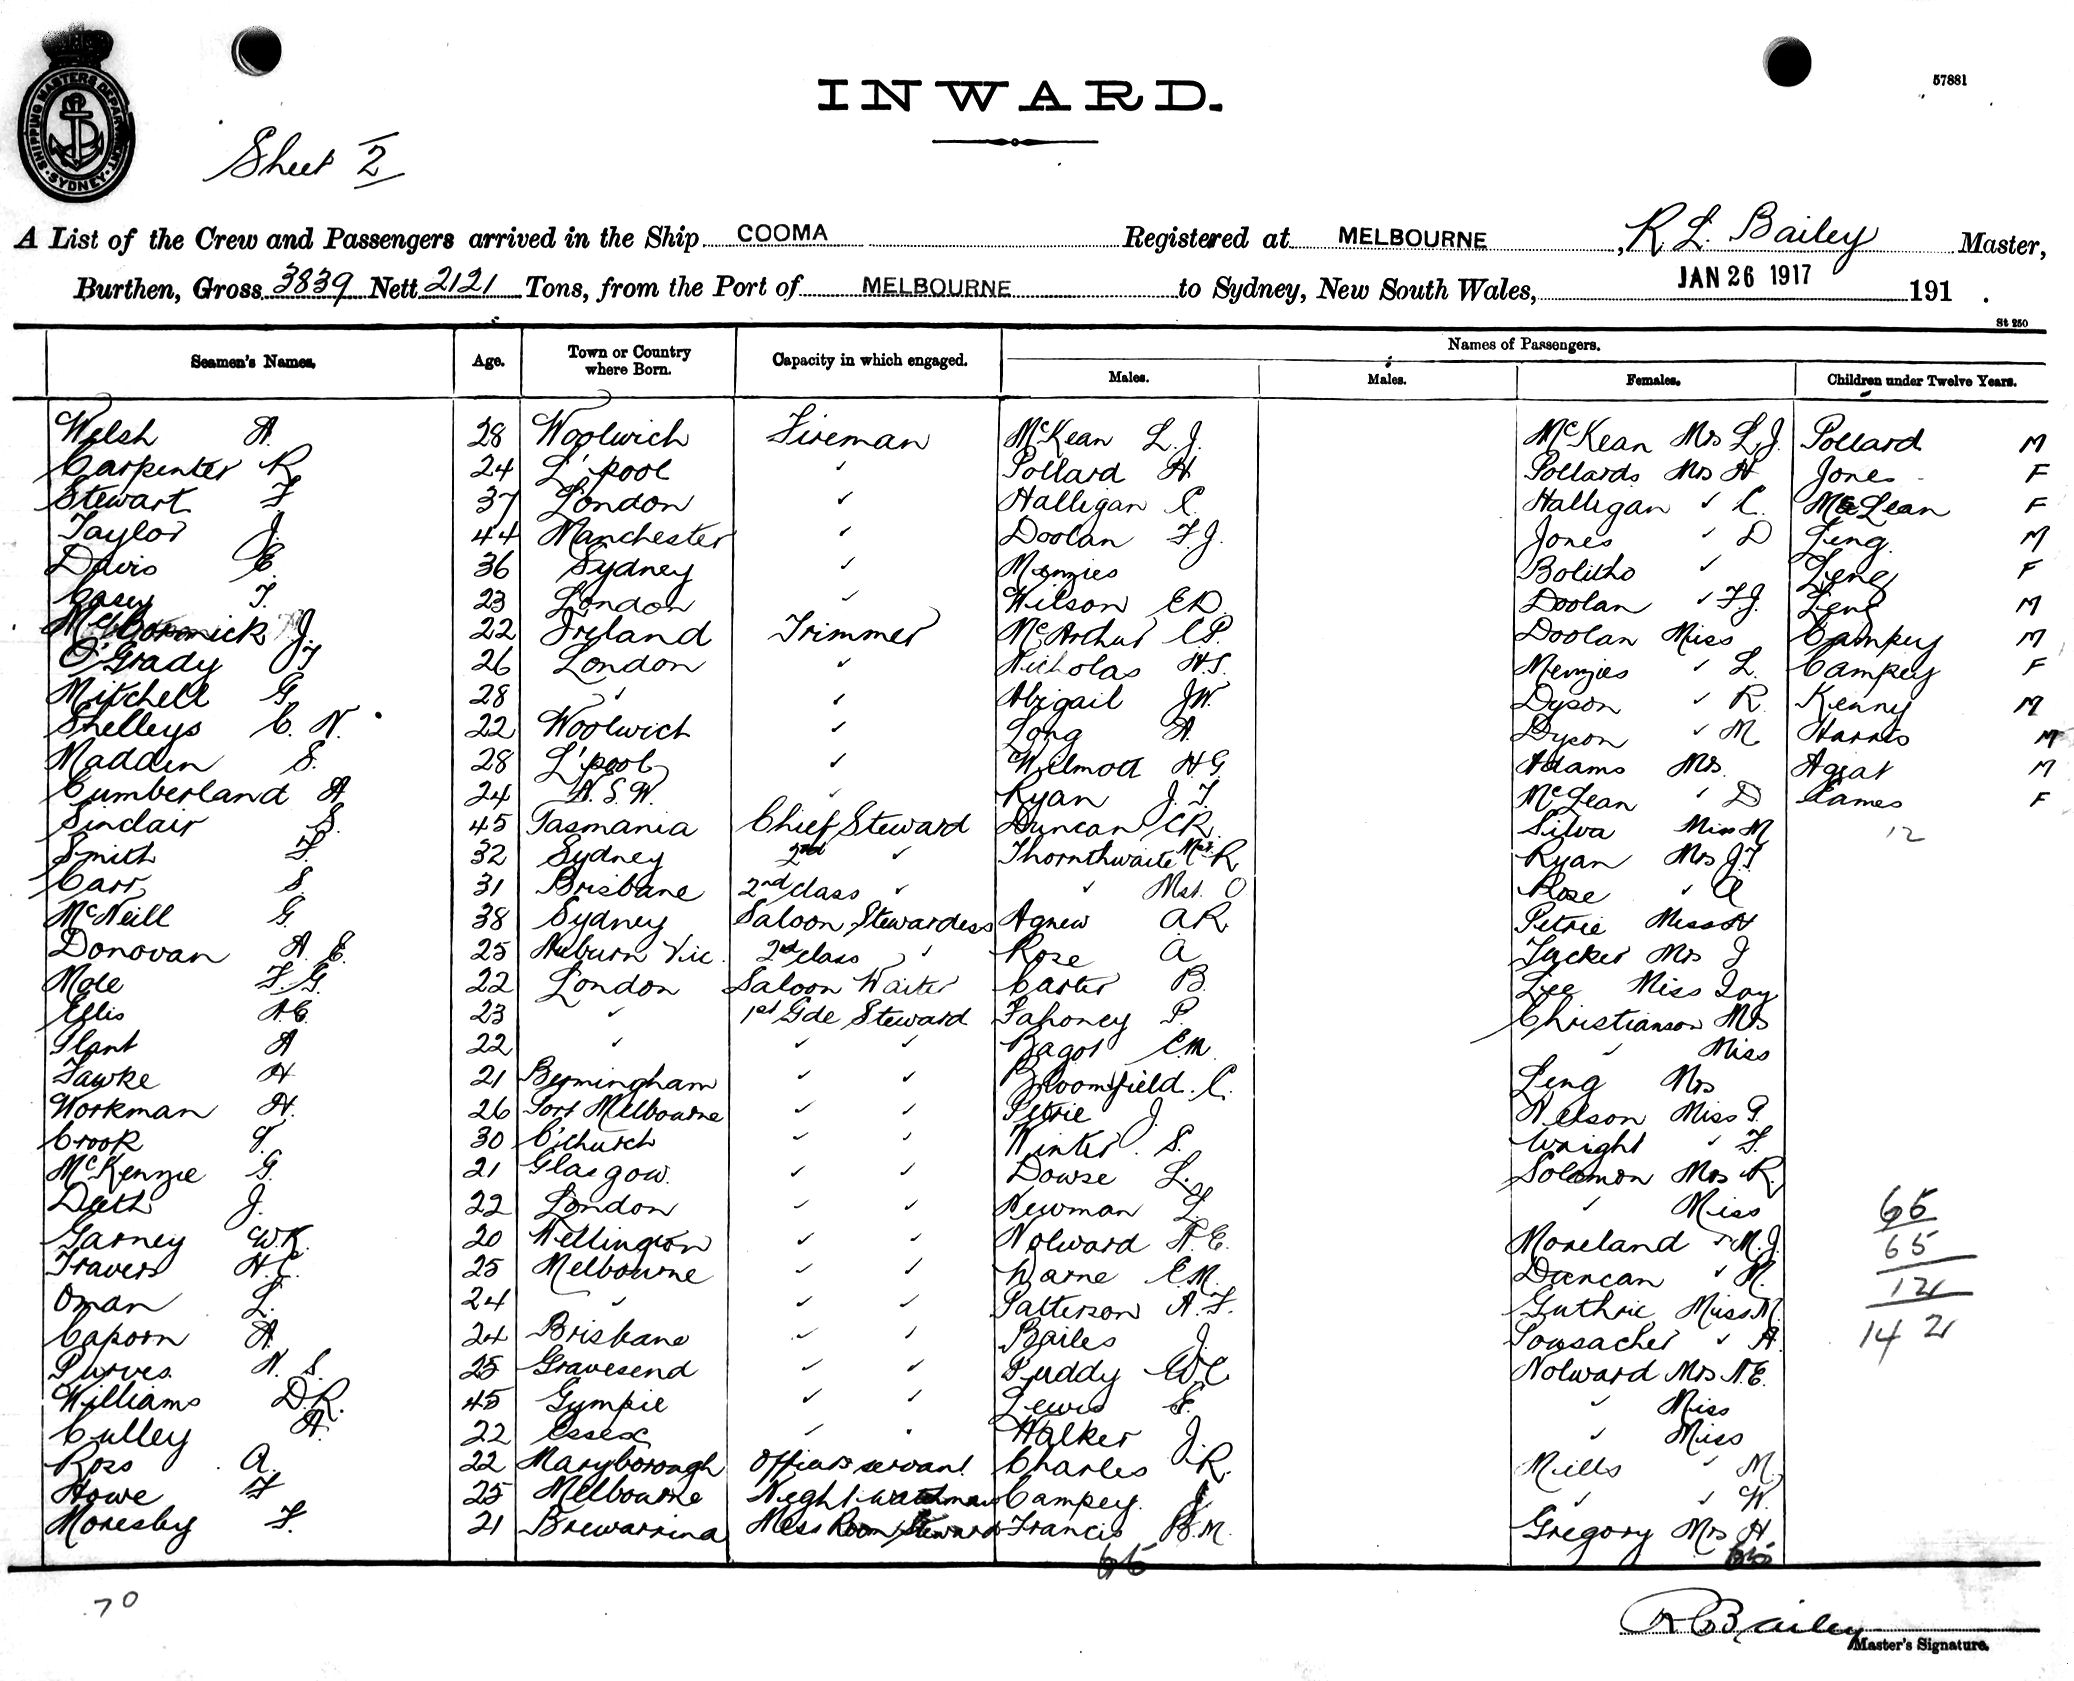 SHIPPING MASTERS DEPARTMENT
SYDNEY
57881
INWARD.
Sheet 2
A List of the Crew and Passengers arrived in the Ship COOMA Registered at MELBOURNE, R L. Bailey Master,
Burthen, Gross 3839 Nett 2121 Tons, from the Port of MELBOURNE to Sydney, New South Wales, JAN 26 1917 191 .
St 250
Seamen's Names. Age. Town or Country where Born. Capacity in which engaged. Names of Passengers.
Males. Males. Females. Children under Twelve Years.
Welsh A. 28 Woolwich Fireman McKean L.J. McKean Mrs L.J. Pollard M
Carpenter R 24 L'pool ✓ Pollard H Pollards Mrs H Jones F
Stewart F 37 London ✓ Halligan C. Halligan ✓ C. McLean F
Taylor J. 44 Manchester ✓ Doolan F.J. Jones ✓ D Leng M
Davis E. 36 Sydney ✓ Menzies Bolitho ✓ Leng F
Casey T. 23 London ✓ Wilson E.D. Doolan ✓ F.J. Leng M
McCormick J. 22 Ireland Trimmer McArthur C.P. Doolan Miss Campey M
O'Grady JT 26 London ✓ Nicholas H.S. Menzies ✓ L. Campey F
Mitchell G 28 ✓ ✓ Abigail J.W. Dyson ✓ R. Kenny M
Shelleys C. N. 22 Woolwich ✓ Long A. Dyson ✓ M Harris M
Madden S. 28 L'pool ✓ Wilmott H G Adams Mrs. Agar M
Cumberland A 24 N.S.W. ✓ Ryan J.T. McLean ✓ D Eames F
Sinclair S. 45 Tasmania Chief Steward Duncan C.R. Silva Miss M 12
Smith F. 32 Sydney 2nd ✓ Thornthwaite Mst. R Ryan Mrs J.T
Carr S. 31 Brisbane 2nd class ✓ ✓ Mst. O Rose ✓ A
McNeill G. 38 Sydney Saloon Stewardess Agnew A.R. Petrie Miss H
Donovan A. E. 25 Auburn Vic. 2nd class ✓ Rose A Tucker Mrs J
Mole F.G. 22 London Saloon Waiter Carter B. Lee Miss Joy
Ellis A.C. 23 ✓ 1st Gde Steward Fahoney P. Christianson Mrs
Plant A 22 ✓ ✓ ✓ Bagot E.M. ✓ Miss
Fawke H 21 Bermingham ✓ ✓ Bloomfield. C. Leng Mrs
Workman H. 26 Port Melbourne ✓ ✓ Petrie J. Nelson Miss G.
Crook 30 C'church ✓ ✓ Winter. S. Wright ✓ F.
McKenzie G. 21 Glasgow. ✓ ✓ Dowse L. Solomon Mrs R.
Deeth J. 22 London ✓ ✓ Newman L. ✓ Miss
Garney W.K. 20 Wellington ✓ ✓ Nolward A.E. Moreland ✓ M.J.
Travers H.C. 25 Melbourne ✓ ✓ Warne E.M. Duncan ✓ M.
Oman L. 24 ✓ ✓ ✓ Patterson A.F. Guthrie Miss M.
Caporn A. 24 Brisbane ✓ ✓ Bailes J. ✓ A.
Purves. N. S. 25 Gravesend ✓ ✓ Puddy W C Nolward Mrs A.E.
Williams D.R. 45 Gympie ✓ ✓ Lewis F. ✓ Miss
Culley A. 22 Essex ✓ ✓ Walker J. ✓ Miss
Ross A. 22 Maryborough Officers servant Charles R. Mills ✓ M.
Howe F 25 Melbourne Night watchman Campey. J ✓ ✓ W.
Moresby F. 21 Brewarrina Mess Room Steward Francis B.M. Gregory Mrs H.
65
65
12
142
65 65
70
R L Bailey
Master's Signature.